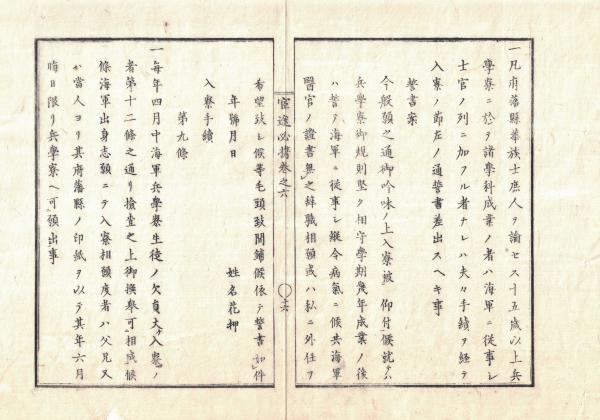 一凡府藩縣華族士庶人ヲ論セス十五歳以上兵
學寮ニ於テ諸學科成業ノ者ハ海軍ニ從事シ
士官ノ列ニ加フル者ナレハ夫々手續ヲ經テ
入寮ノ節左ノ通誓書差出スヘキ事
誓書案
今般願之通御吟味ノ上入寮被 仰付候就テハ
兵學寮御規則堅ク相守學期幾年成業ノ後
ハ誓テ海軍ニ從事シ縱令病氣ニ候共海軍
醫官ノ證書無之辞職相願或ハ私ニ外任ヲ
宦途必携巻之六
希望致シ候等毛頭致間鋪候依テ誓書如件
年號月日
姓名花押
入寮手續
第九條
一毎年四月中海軍兵學寮生徒ノ欠員大ケ入寮ノ
者第十二條之通リ檢査之上御撰擧可相成候
條海軍出身志願ニテ入寮相願度者ハ父兄又
ハ當人ヨリ其府藩縣ノ印紙ヲ以テ其年六月
晦日限リ兵學寮ヘ可願出事